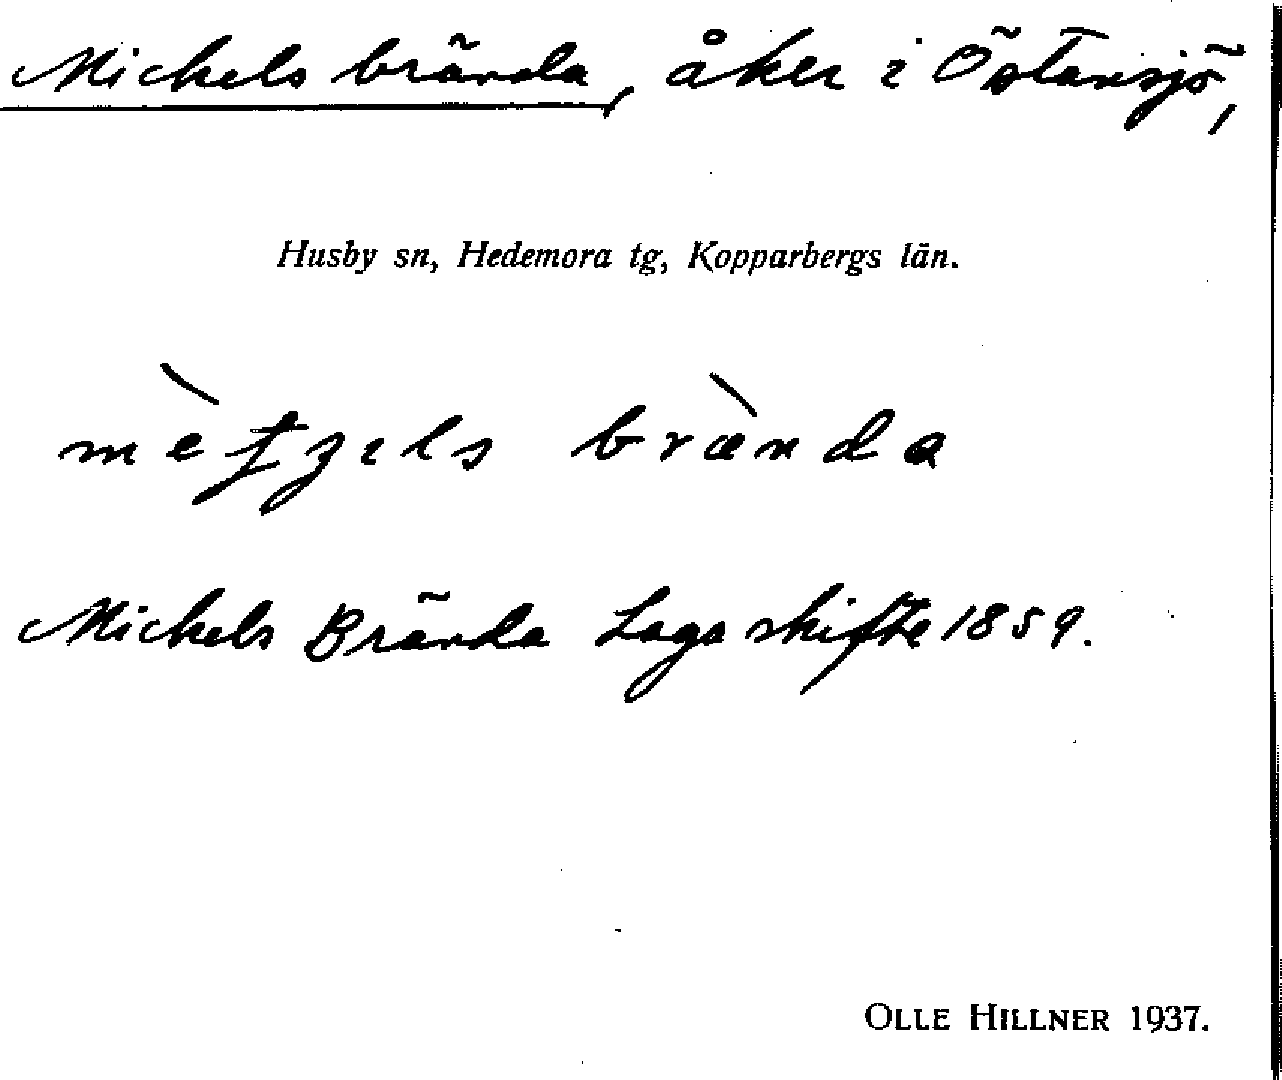 Mickels brända, åker i Östansjö,
Husby sn, Hedemora tg, Kopparbergs län.
bræ̀nda
Mickels Brända Laga skifte 1859.
OLLE HILLNER 1937.